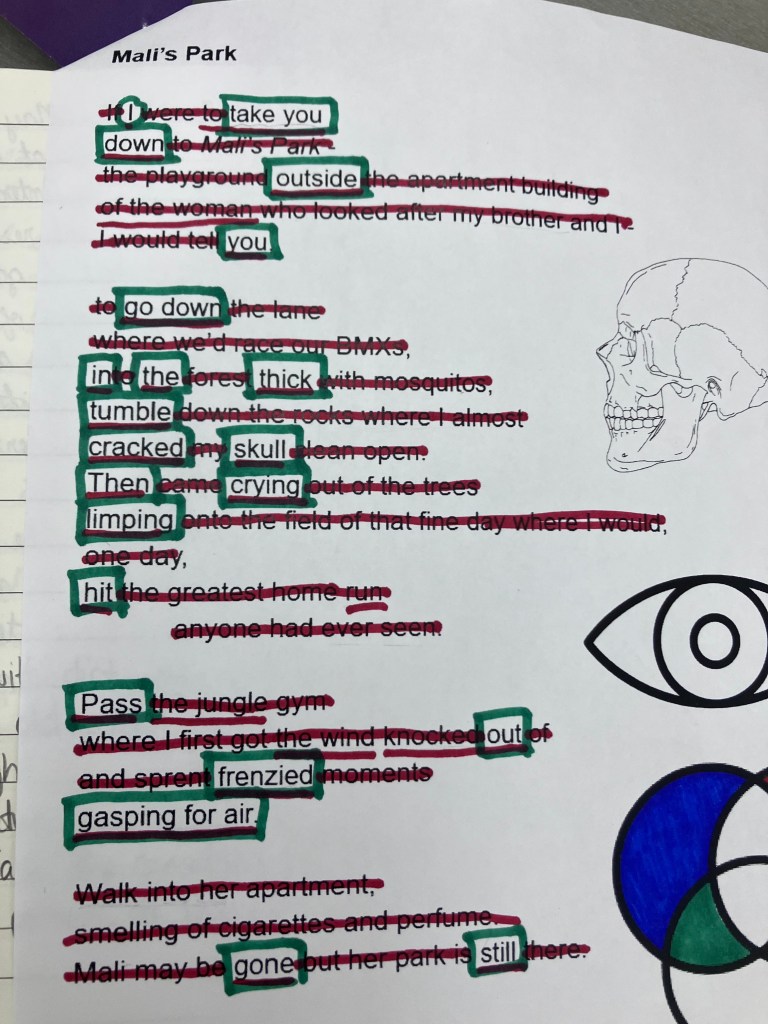 Mali's Park
If I were to take you
down to Mali's Park -
the playground outside the apartment building
of the woman who looked after my brother and I -
I would tell you
to go down the lane
where we'd race our BMXs,
into the forest thick with mosquitos,
tumble down the rocks where I almost
cracked my skull clean open.
Then came crying out of the trees
limping onto the field of that fine day where I would,
one day,
hit the greatest home run
anyone had ever seen.
Pass the jungle gym
where I first got the wind knocked out of
and sprent frenzied moments
gasping for air.
Walk into her apartment,
smelling of cigarettes and perfume
Mali may be gone but her park is still there.